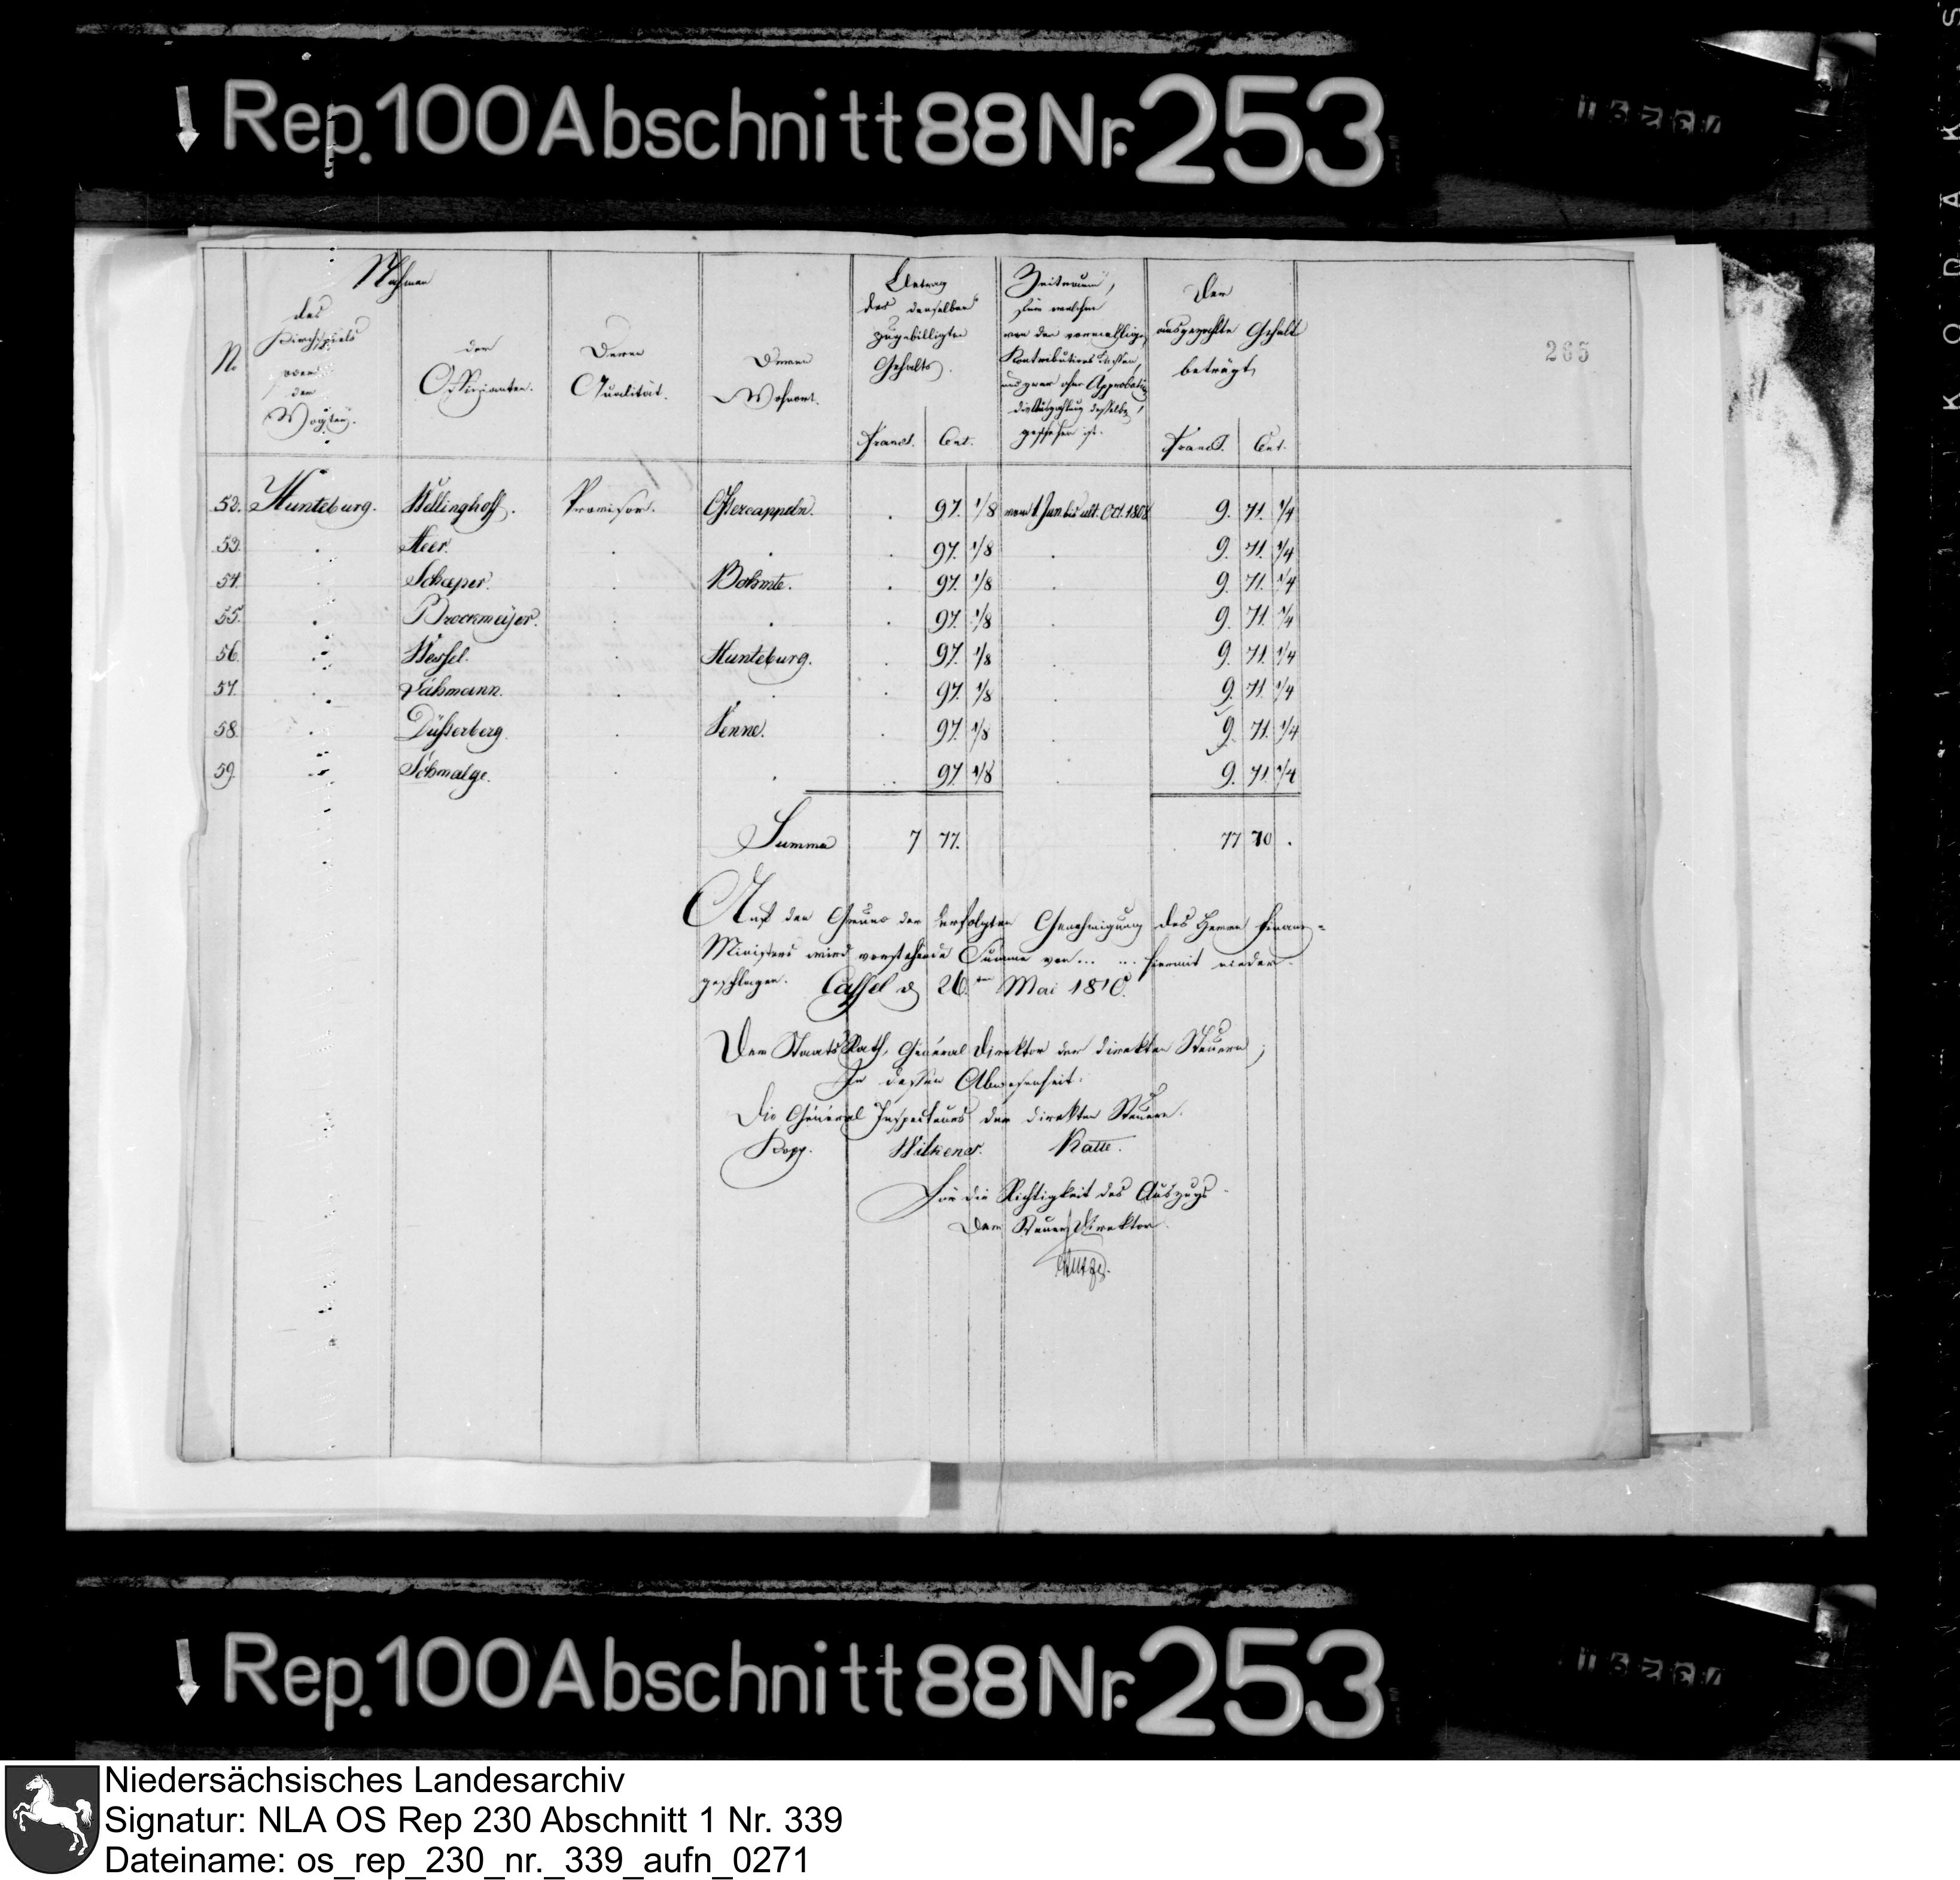 Rep. 100 Abschnitt 88 Nr. 253
265
Nahmen
No
des Kirchspiels oder der Vogtey.
der Officianten.
Deren Qualität.
Deren Wohnort.
Betrag des denselben zugebilligten Gehalts.
Francs. Cent.
Zeitraum, für welchen von den vormahligen Kontributions Cassen, und zwar ohne Approbation die Auszahlung desselben, geschehen ist.
Der ausgezahlte Gehalt beträgt,
Francs. Cent.
52. Hunteburg. Wellinghoff. Provisor. Ostercappeln. . 97. 1/8 vom 1 Jan bis ult. Oct. 1808 9. 71. 1/4
53. . Meer. . . . 97. 1/8 . 9. 71. 1/4
54. . Schaeper. . Bohmte. . 97. 1/8 . 9. 71. 1/4
55. . Brockmeijer. . . . 97. 1/8 . 9. 71. 1/4
56. . Wessel. . Hunteburg. . 97. 1/8 . 9. 71. 1/4
57. . . . . 97. 1/8 . 9. 71. 1/4
58. . Düsterberg. . Venne. . 97. 1/8 . 9. 71. 1/4
59. . Schmalge. . . . 97. 1/8 . 9. 71. 1/4
Summa 7 77. 77 70 .
Auf den Grund der erfolgten Genehmigung des Herrn Finanz-
Ministers wird vorstehende Summe von ... ... hiermit nieder-
geschlagen. Cassel d 26ten Mai 1810.
Der Staats Rath, Général Direktor der direkten Steuern;
In dessen Abwesenheit.
Die Général Inspecteurs der direkten Steuern.
Kopp. Wilkens. Katte.
Für die Richtigkeit des Auszugs
Der Steuer Direktor
Rep. 100 Abschnitt 88 Nr. 253
Niedersächsisches Landesarchiv
Signatur: NLA OS Rep 230 Abschnitt 1 Nr. 339
Dateiname: os_rep_230_nr._339_aufn_0271